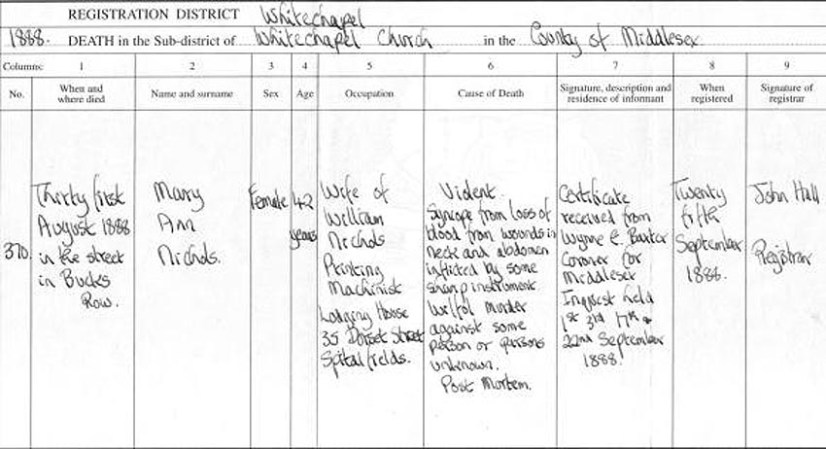 REGISTRATION DISTRICT Whitechapel
1888. DEATH in the Sub-district of Whitechapel Church in the County of Middlesex
Columns: 1 2 3 4 5 6 7 8 9
No. When and where died Name and surname Sex Age Occupation Cause of Death Signature, description and residence of informant When registered Signature of registrar
370.
Thirty first
August 1888
in the street
in Bucks
Row.
Mary
Ann
Nichols.
Female
42
years
Wife of
William
Nichols
Printing
Machinist
Lodging House
35 Dorset Street
Spitalfields.
Violent.
Syncope from loss of
blood from wounds in
neck and abdomen
inflicted by some
sharp instrument.
Wilful Murder
against some
person or persons
unknown.
Post Mortem.
Certificate
received from
Wynne E. Baxter
Coroner for
Middlesex
Inquest held
1st 3rd 17th &
22nd September
1888.
Twenty
fifth
September
1888.
John Hall
Registrar